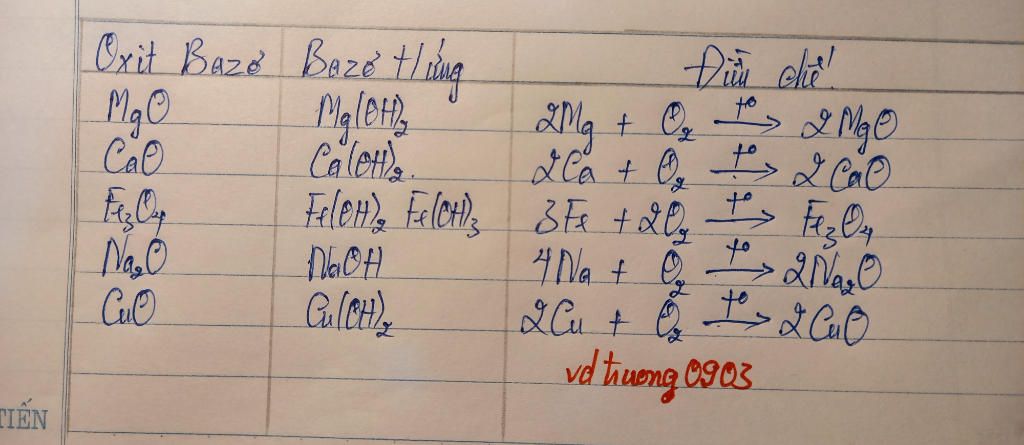 Oxit Bazơ Bazơ t/ứng Điều chế
MgO Mg(OH)₂ 2Mg + O₂ —t°→ 2MgO
CaO Ca(OH)₂. 2Ca + O₂ —t°→ 2CaO
Fe₃O₄ Fe(OH)₂ Fe(OH)₃ 3Fe + 2O₂ —t°→ Fe₃O₄
Na₂O NaOH 4Na + O₂ —t°→ 2Na₂O
CuO Cu(OH)₂ 2Cu + O₂ —t°→ 2CuO
vdtruong0903
TIẾN